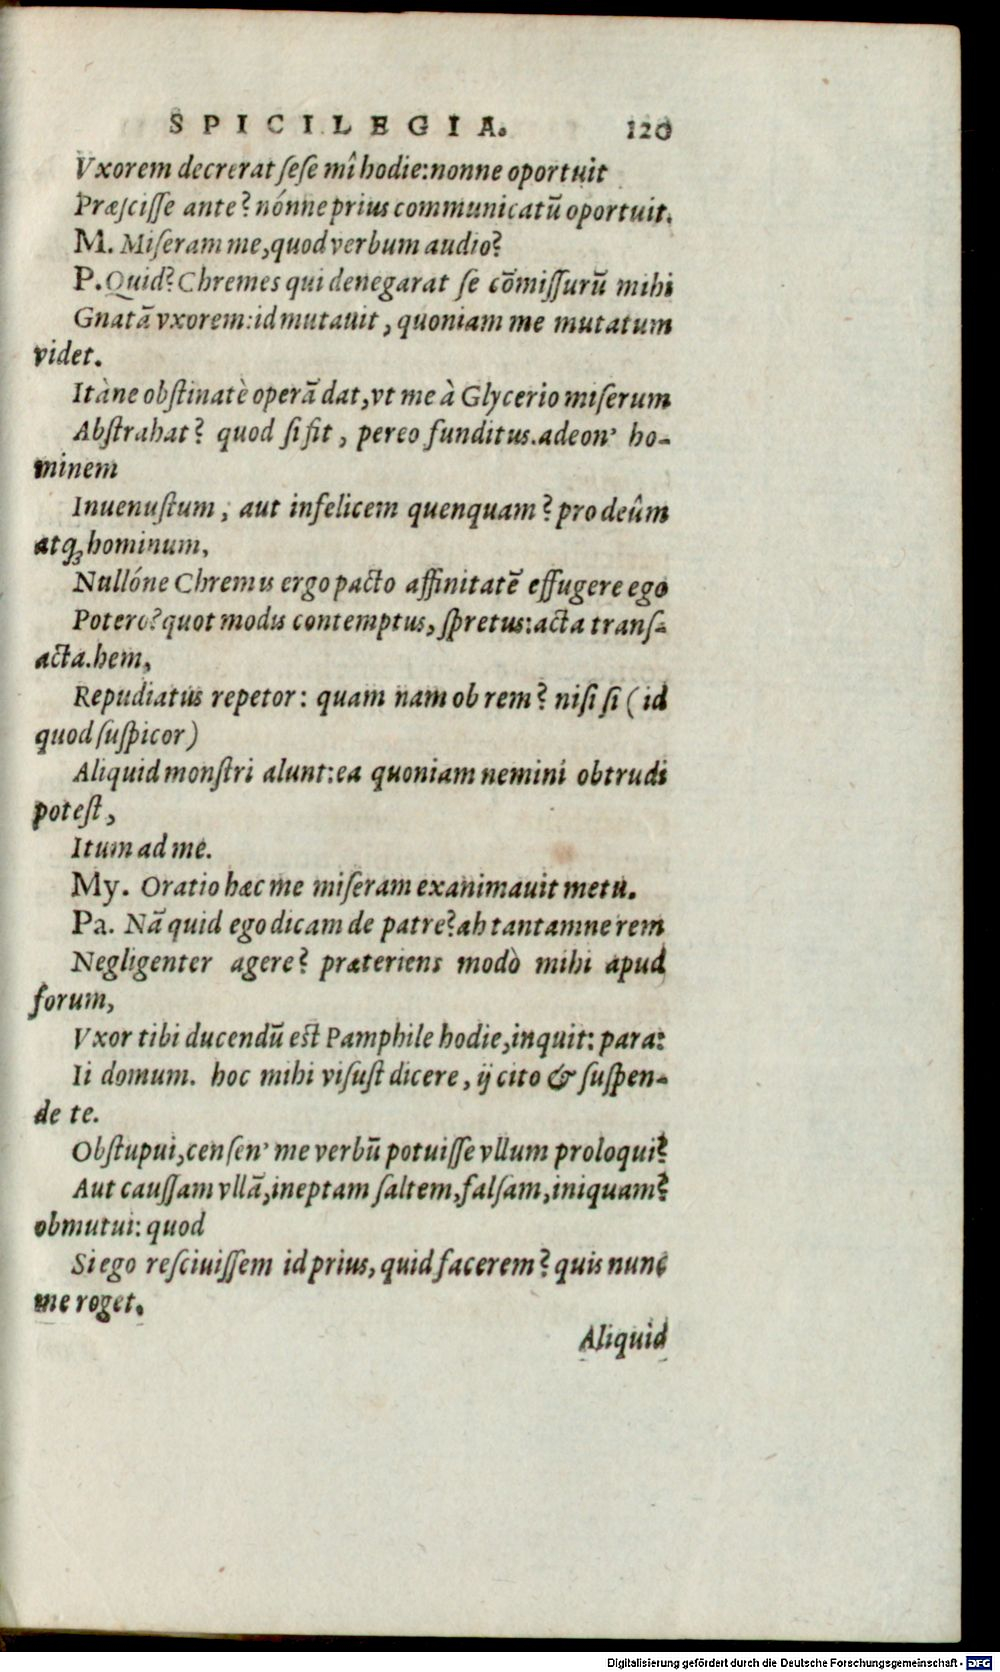 SPICILEGIA. 120
Vxorem decrerat sese mî hodie: nonne oportuit
Præscisse ante? nónne prius communicatū oportuit.
M. Miseram me, quod verbum audio?
P. Quid? Chremes qui denegarat se cōmissurū mihi
Gnatā vxorem: id mutauit, quoniam me mutatum
videt.
Itàne obstinatè operā dat, vt me à Glycerio miserum
Abstrahat? quod si fit, pereo funditus. adeon' ho-
minem
Inuenustum, aut infelicem quenquam? pro deûm
atq; hominum,
Nullóne Chremis ergo pacto affinitatē effugere ego
Potero? quot modis contemptus, spretus: acta trans-
acta. hem,
Repudiatus repetor: quam nam ob rem? nisi si (id
quod suspicor)
Aliquid monstri alunt: ea quoniam nemini obtrudi
potest,
Itum ad me.
My. Oratio hæc me miseram exanimauit metu.
Pa. Nā quid ego dicam de patre? ah tantamne rem
Negligenter agere? præteriens modò mihi apud
forum,
Vxor tibi ducendū est Pamphile hodie, inquit: para:
Ii domum. hoc mihi visust dicere, ij cito & suspen-
de te.
Obstupui, censen' me verbū potuisse vllum proloqui?
Aut caussam vllā, ineptam saltem, falsam, iniquam?
obmutui: quod
Si ego resciuissem id prius, quid facerem? quis nunc
me roget.
Aliquid
Digitalisierung gefördert durch die Deutsche Forschungsgemeinschaft - DFG